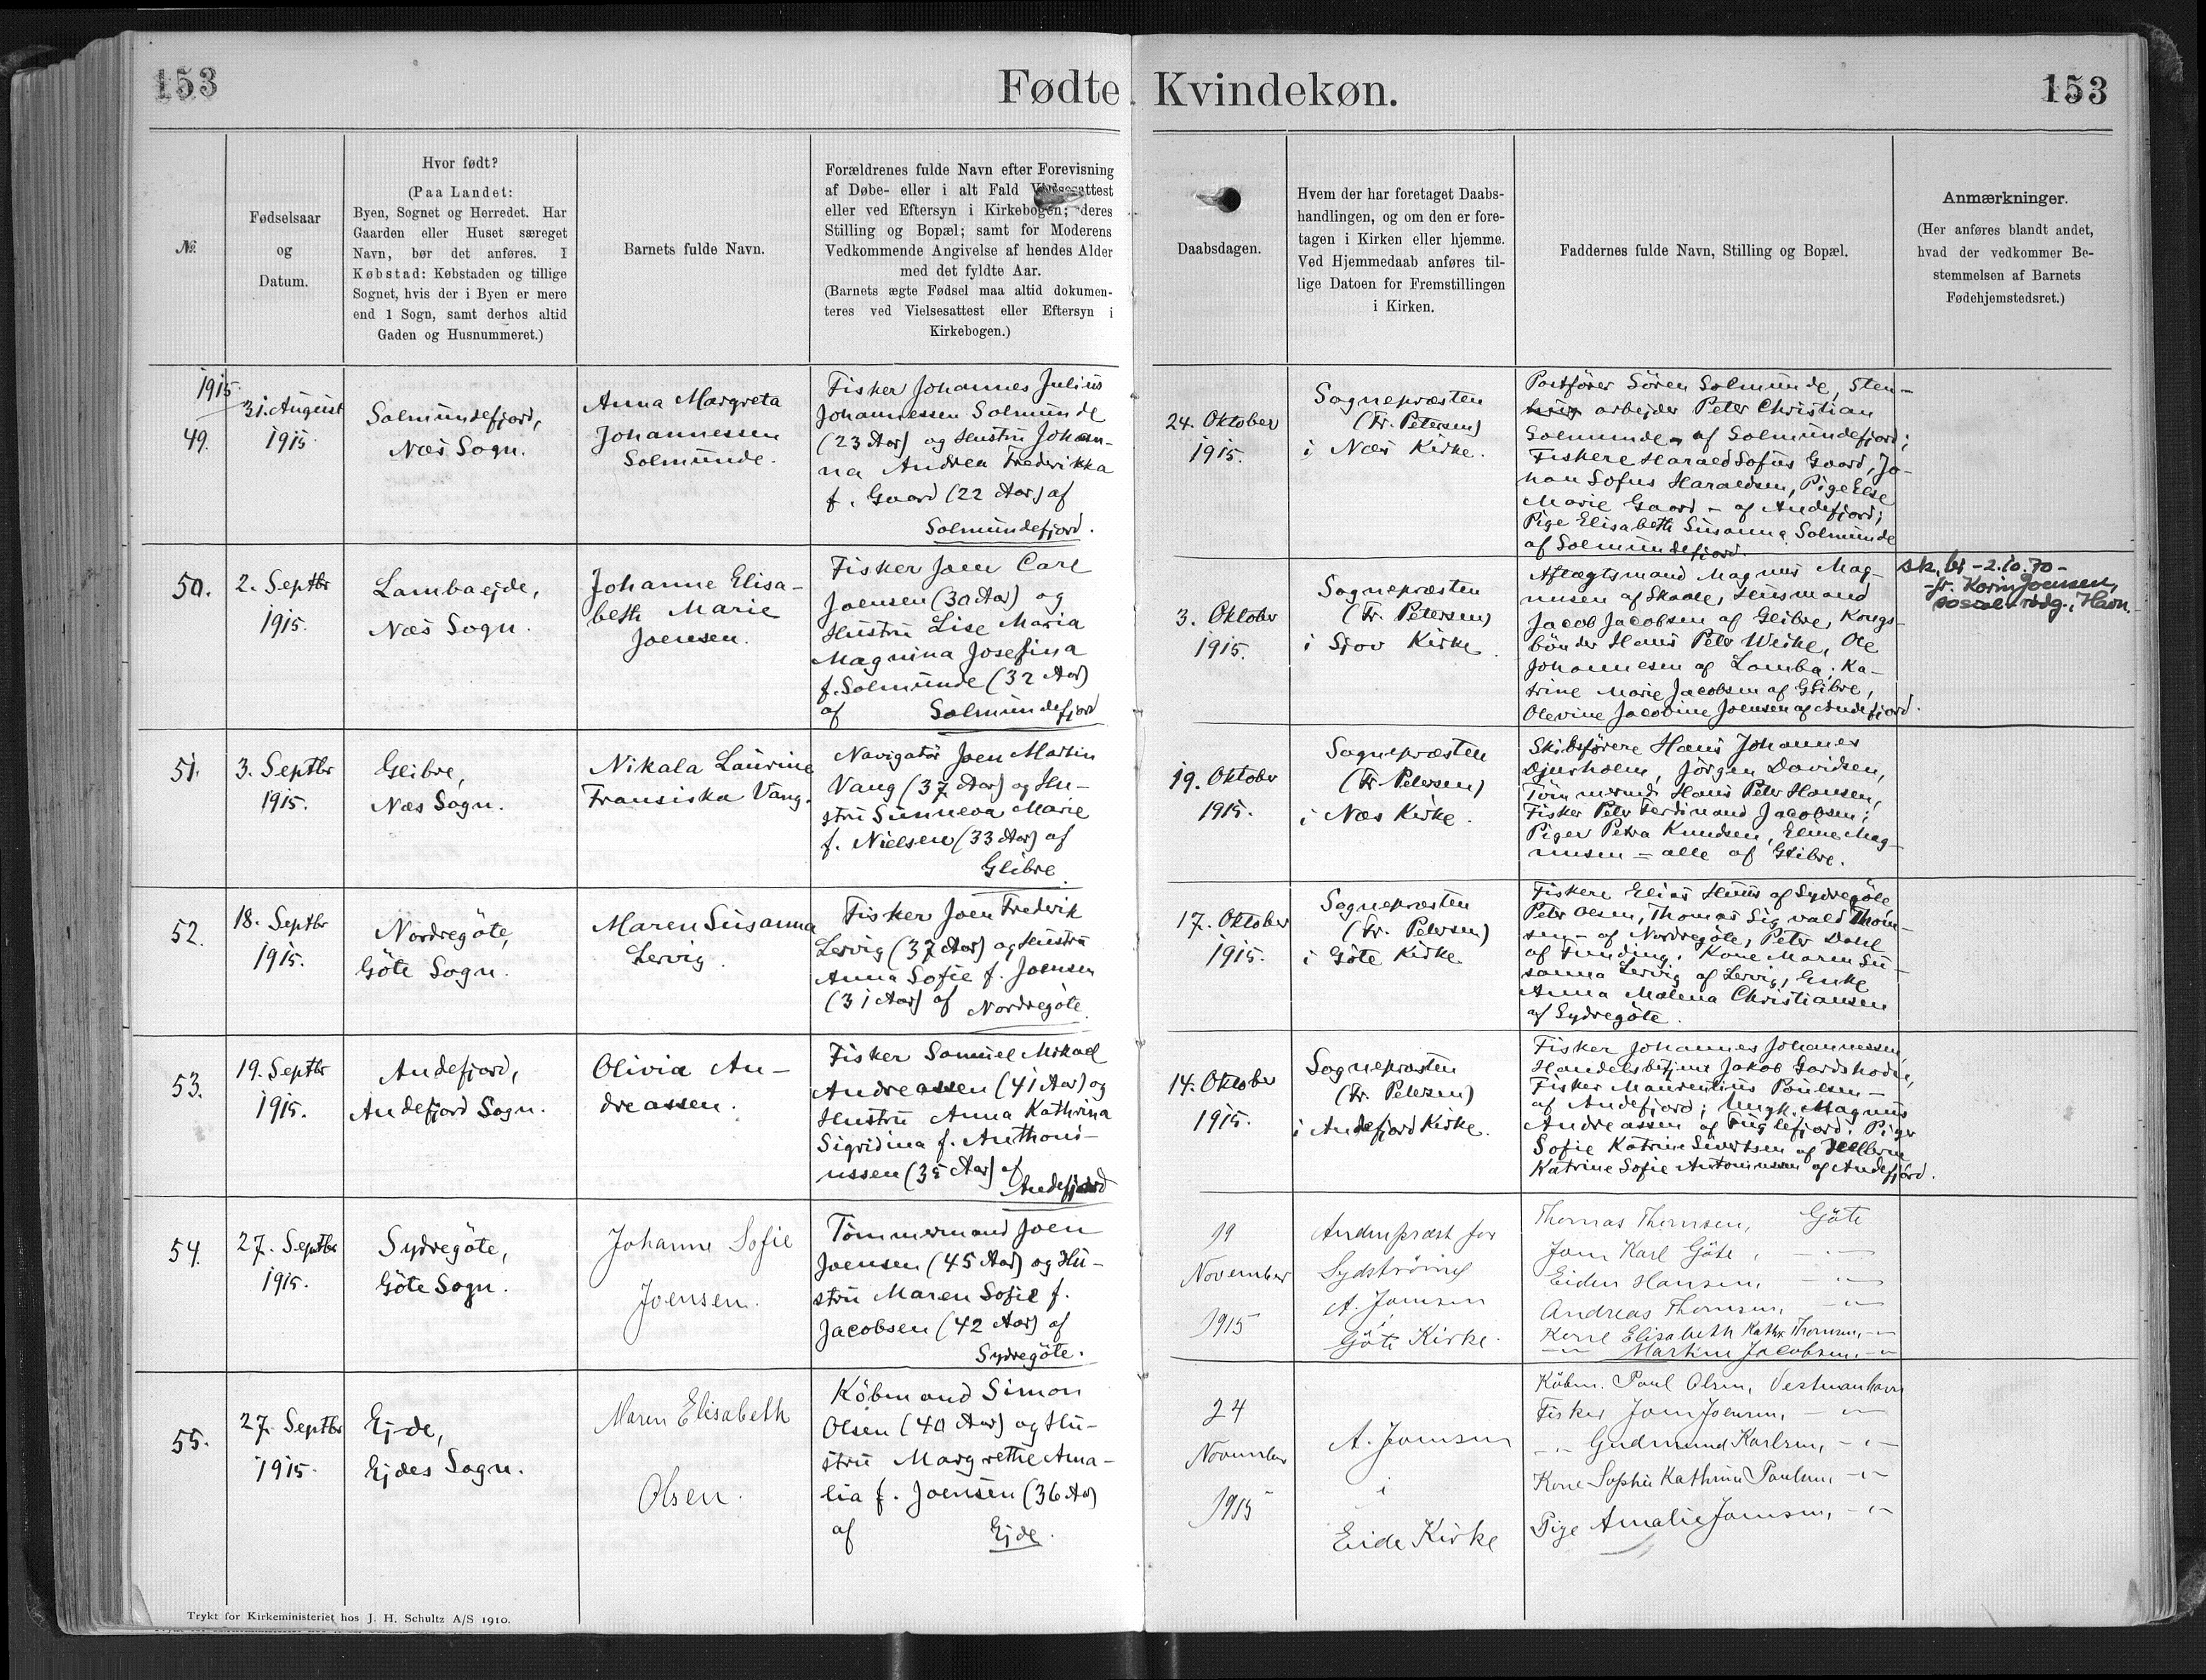 153
Fødte Kvindekøn.
153
№.
Fødselsaar
og
Datum.
Hvor født?
(Paa Landet:
Byen, Sognet og Herredet. Har
Gaarden eller Huset særeget
Navn, bør det anføres. I
Købstad: Købstaden og tillige
Sognet, hvis der i Byen er mere
end 1 Sogn, samt derhos altid
Gaden og Husnummeret.)
Barnets fulde Navn.
Forældrenes fulde Navn efter Forevisning
af Døbe- eller i alt Fald Vielsesattest
eller ved Eftersyn i Kirkebogen; deres
Stilling og Bopæl; samt for Moderens
Vedkommende Angivelse af hendes Alder
med det fyldte Aar.
(Barnets ægte Fødsel maa altid dokumen-
teres ved Vielsesattest eller Eftersyn i
Kirkebogen.)
Daabsdagen.
Hvem der har foretaget Daabs-
handlingen, og om den er fore-
tagen i Kirken eller hjemme.
Ved Hjemmedaab anføres til-
lige Datoen for Fremstillingen
i Kirken.
Faddernes fulde Navn, Stilling og Bopæl.
Anmærkninger.
(Her anføres blandt andet,
hvad der vedkommer Be-
stemmelsen af Barnets
Fødehjemstedsret.)
1915
49.
31. August
1915
Solmundefjord,
Næs Sogn.
Anna Margreta
Johannessen
Solmunde.
Fisker Johannes Julius
Johannessen Solmunde
(23 Aar) og Hustru Johan-
na Andrea Frederikka
f. Gaard (22 Aar) af
Solmundefjord.
24. Oktober
1915.
Sognepræsten
(Fr. Petersen)
i Næs Kirke.
Postfører Sören Solmunde, Sten-
arbejder Peter Christian
Solmunde af Solmundefjord;
Fiskere Harald Sofus Gaard, Jo-
han Sofus Haraldsen, Pige Else
Marie Gaard - af Andefjord;
Pige Elisabeth Susanna Solmunde
af Solmundefjord.
50.
2. Septbr
1915.
Lambaejde,
Næs Sogn.
Johanne Elisa-
beth Marie
Joensen.
Fisker Joen Carl
Joensen (30 Aar) og
Hustru Lise Maria
Magnina Josefina
f. Solmunde (32 Aar)
af Solmundefjord
3. Oktober
1915.
Sognepræsten
(Fr. Petersen)
i Sjov Kirke.
Aftægtsmand Magnus Mag-
nusen af Skaale, Husmand
Jacob Jacobsen af Glibre, Kongs-
bönder Hans Peter Weihe, Ole
Johannesen af Lamba; Ka-
trine Marie Jacobsen af Glibre,
Olevine Jacobine Joensen af Andefjord.
sk. br - 2.10.70 -
- fr. Korin Joensen
sosial-rádg., Havn
51.
3. Septbr
1915.
Glibre,
Næs Sogn.
Nikala Laurine
Fransiska Vang.
Navigatør Joen Martin
Vang (37 Aar) og Hu-
stru Sunneva Marie
f. Nielsen (33 Aar) af
Glibre.
19. Oktober
1915.
Sognepræsten
(Fr. Petersen)
i Næs Kirke.
Skibsførere Hans Johannes
Djurholm, Jörgen Davidsen,
Tömmermd. Hans Peter Hansen,
Fisker Peter Ferdinand Jacobsen;
Piger Petra Knudsen, Eline Mag-
nusen - alle af Glibre.
52.
18. Septbr
1915.
Nordregöte,
Göte Sogn.
Maren Susanna
Lervig
Fisker Joen Frederik
Lervig (37 Aar) og Hustru
Anna Sofie f. Joensen
(31 Aar) af Nordregöte.
17. Oktober
1915.
Sognepræsten
(Fr. Petersen)
i Göte Kirke
Fiskere Elias Huus af Sydregöte
Peter Olsen, Thomas Sigvald Thom-
sen - af Nordregöte, Peter Dahl
af Funding; Kone Maren Su-
sanna Lervig af Lervig, Enke
Anna Malena Christiansen
af Sydregöte.
53.
19. Septbr
1915.
Andefjord,
Andefjord Sogn.
Olivia An-
dreassen.
Fisker Samuel Mikael
Andreassen (41 Aar) og
Hustru Anna Kathrina
Sigridina f. Anthoni-
ussen (35 Aar) af
Andefjord
14. Oktober
1915.
Sognepræsten
(Fr. Petersen)
i Andefjord Kirke.
Fisker Johannes Johannessen,
Handelsbetjent Jakob Gardshodn,
Fisker Maurentius Poulsen -
af Andefjord; Ungk. Magnus
Andreassen af Fuglefjord; Piger
Sofie Katrine Sivertsen af
Katrine Sofie Antoniussen af Andefjord.
54.
27. Septbr
1915.
Sydregöte,
Göte Sogn.
Johanne Sofie
Joensen.
Tömmermand Joen
Joensen (45 Aar) og Hu-
stru Maren Sofie f.
Jacobsen (42 Aar) af
Sydregöte.
19
November
1915
Andenpræst for
Sydströmø
A. Joensen
i
Göte Kirke.
Thomas Thomsen, Göte
Joen Karl Göte, - " -
Eiden Hansen, - " -
Andreas Thomsen, - " -
Kone Elisabeth Kathr. Thomsen, - " -
- " - Martine Jacobsen, - " -
55.
27. Septbr
1915.
Ejde,
Ejdes Sogn.
Maren Elisabeth
Olsen.
Købmand Simon
Olsen (40 Aar) og Hu-
stru Margrethe Ama-
lia f. Joensen (36 Aar)
af Ejde.
24
November
1915
A. Joensen
i
Eide Kirke
Købm. Poul Olsen, Vestmanhavn
Fisker Joen Joensen, - " -
- " - Gudmund Karlsen, - " -
Kone Sophie Kathrine Poulsen, - " -
Pige Amalie Joensen, - " -
Trykt for Kirkeministeriet hos J. H. Schultz A/S 1910.